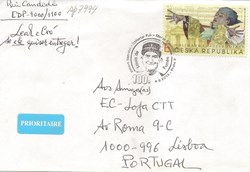 Rui Candeias
EDP-1000/1100
Leal e Cró
se ele quiser entregar!
ČESKÁ REPUBLIKA
100
PRIORITAIRE
Aos Amigos(as)
EC-Loja CTT
Av Roma 9-C
1000-996 Lisboa
PORTUGAL